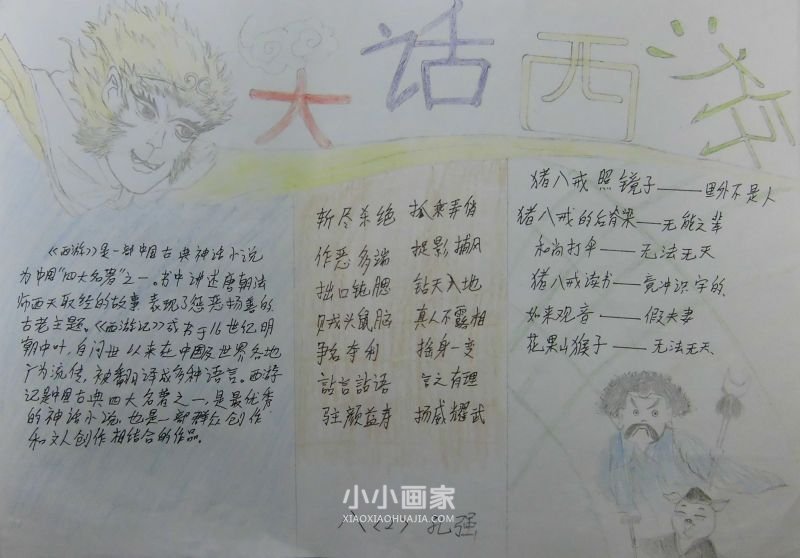 大话西游
《西游》是一部中国古典神话小说
为中国“四大名著”之一。书中讲述唐朝法
师西天取经的故事,表现了惩恶扬善的
古老主题。《西游记》成书于16世纪明
朝中叶,自问世以来在中国及世界各地
广为流传,被翻译成多种语言。西游
记是中国古典四大名著之一,是最优秀
的神话小说,也是一部群众创作
和文人创作相结合的作品。
斩尽杀绝 抓乖弄俏
作恶多端 捉影捕风
拙口钝腮 钻天入地
贼头鼠脑 真人不露相
争名夺利 摇身一变
言之有理
驻颜益寿 扬威耀武
猪八戒照镜子——里外不是人
猪八戒的后脊梁——无能之辈
和尚打伞——无法无天
猪八戒读书——充识字的
如来观音——假夫妻
花果山猴子——无法无天
八(2) 孔强
小小画家
XIAOXIAOHUAJIA.COM